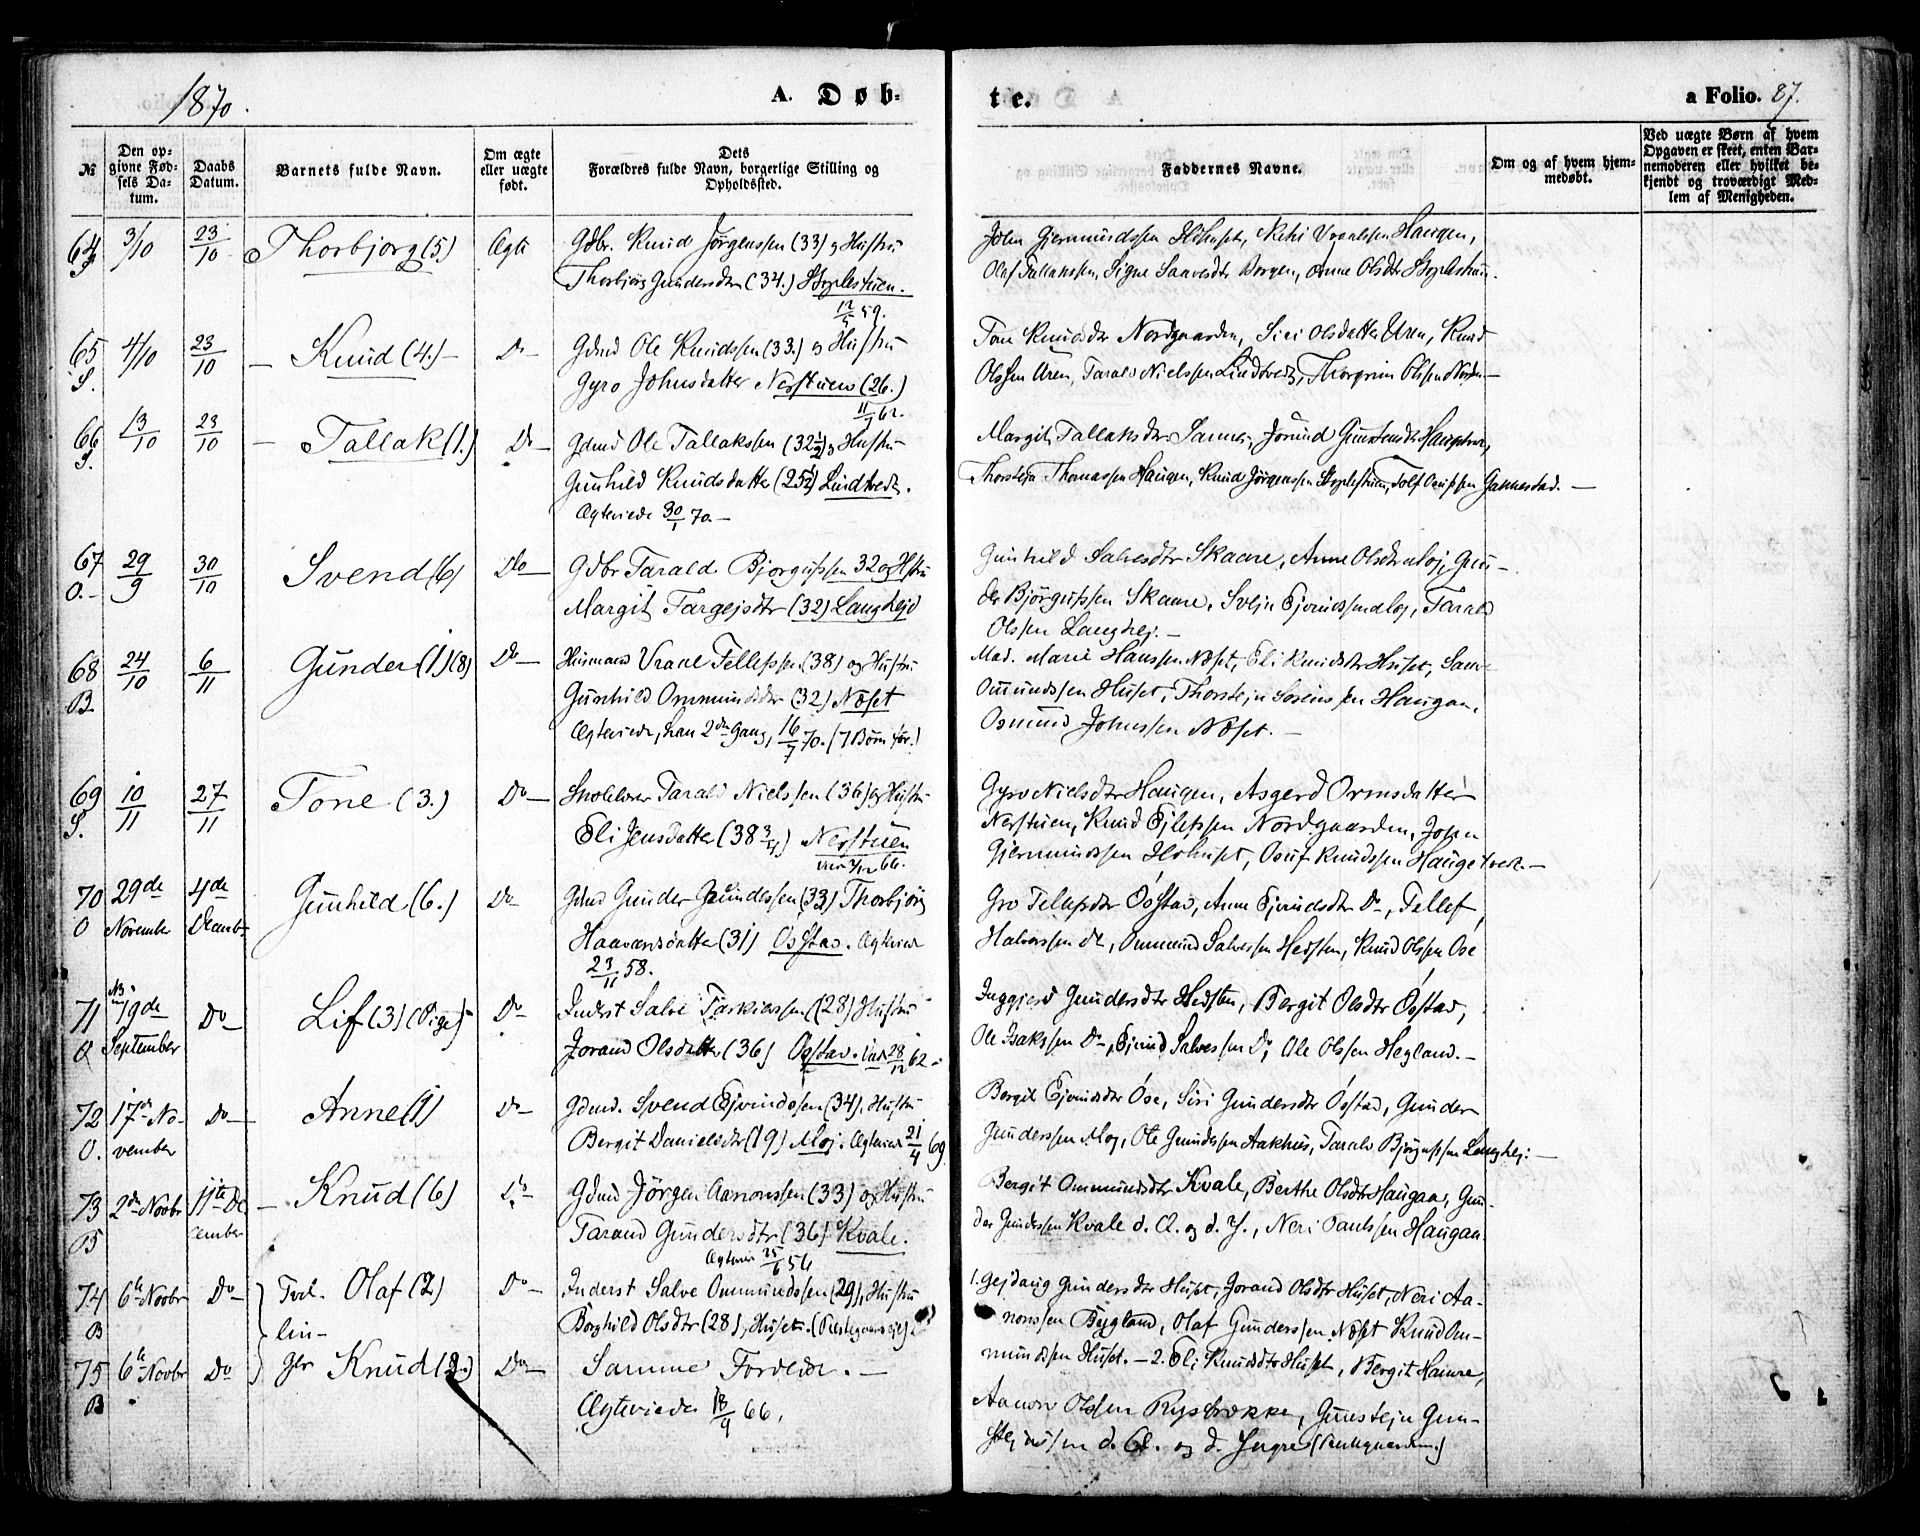 1870.
A. Døb-
te.
a Folio. 87.
№
Den op-
givne Fød-
sels Da-
tum.
Daabs
Datum.
Barnets fulde Navn.
Om ægte
eller uægte
født.
Dets
Forældres fulde Navn, borgerlige Stilling og
Opholdssted.
Faddernes Navne.
Om og af hvem hjem-
medøbt.
Ved uægte Børn af hvem
Opgaven er skeet, enten Bar-
nemoderen eller hvilket be-
kjendt og troværdigt Med-
lem af Menigheden.
64 3/10 23/10 Thorbjorg (5) Ægte Gdbr. Knud Jörgenssen (33) og Hustru
S. Thorbjörg Gundersdtr (34.) Stoplestuen.
12/5 59.
John Gjermundssen Ishuset, Haugen,
Olaf Tallakssen, Signe Saavesdtr Borgen, Anne Olsdtr Stoplestuen.
65 4/10 23/10 – Knud (4.) – Do – Gdmd Ole Knudssen (33.) og Hustru
S. Gyro Johnsdatter Nerstuen (26.)
11/7 62.
Tone Knudsdtr Nordgaarden, Siri Olsdatter Uren, Knud
Olssen Uren, Tarald Nielssen Lindtvedt, Thorgrim Olssen
66 13/10 23/10 – Tallak (1.) Do – Gdmd Ole Tallakssen (32½) og Hustru
S. Gunhild Knudsdatter (25½) Lindtvedt.
Ægteviede 30/1 70. –
Margit Tallaksdtr Jorund Gunstensdtr
Thorstejn Thomassen Haugen, Knud Jörgenssen Stoplestuen, –
67 29/9 30/10 Svend (6) Do – Gdbr Tarald Bjorgufssen 32 og Hstru
O. – Margit Targejsdtr (32) Langhejd
Gunhild Salvesdtr Skaare, Anne Olsdtr Moj, Gun-
der Björgufssen Skaare, Svejn Ejvindssen Moj, Tarald
Olssen Langhej. –
68 24/10 6/11 Gunder (1) (8) Do – Husmand Vraal Tellefssen (38) og Hustru
B. Gunhild Ommundsdtr (32) Næset
Ægteviede, han 2den Gang, 16/7 70. (7 Börn för.)
Mad. Marie Hanssen Næset, Eli Knudsdtr Huset, Salve
Omundssen Huset, Thorstejn Sörenssen Haugaa,
Osmund Johnssen Næset. –
69 10/11 27/11 Tone (3.) Do – Skolelærer Tarald Nielssen (36) og Hustru
S. Eli Jensdatter (38 3/4) Nerstuen
66.
Gyro Nielsdtr Haugen, Asgerd Ormsdatter
Nerstuen, Knud Ejlefssen Nordgaarden, John
Gjermundssen Ishuset, Knudssen Haugetvedt. –
70 29de 4de Gunhild (6.) Do Gdmd Gunder Gundersen (33) Thorbjörg
O November Decemb. Haavorsdatter (31) Osstad. Ægteviede
23/11 58.
Gro Tellefsdtr Osstad, Anne Ejvindsdtr Do, Tellef
Halvorssen do, Ommund Salvessen Hejsten, Knud Olssen Ose
71 NB. 19de Do – Lif (3) (Pige) – Do – Inderst Salve Tarkjelssen (28) Hustru
O September Jorand Olsdatter (36) Osstad. 28/12 62 –
Inggjerd Gundersdtr Hejsten, Bergit Olsdtr Osstad,
Ole Isakssen Do –, Ejvind Salvessen Do, Ole Olssen Hegland. –
72 17de No- Do – Anne (1) Do – Gdmd. Svend Ejvindssen (34), Hustru
O. vember Bergit Danielsdtr (19) Moj. Ægteviede 21/4 69
Bergit Ejvindsdtr Ose, Siri Gundersdtr Osstad, Gunder
Gunderssen Moj, Ole Gunderssen Aakhus, Tarald Bjørgufssen Langhej. –
73 2den Novbr 11te De- – Knud (6) Do – Gdmd Jörgen Aanonssen (33) og Hustru
B cember Tarand Gundersdtr (36) Kvale.
Ægtevied 25/6 56
Bergit Ommundsdtr Kvale, Berthe Olsdtr Haugaa, Gun-
der Gunderssen Kvale d. Æ. og d. Y., Neri Haugaa.
74 6te Novbr Do – Tvil- Olaf (2) Do – Inderst Salve Ommundssen (29), Hustru
B lin- Borghild Olsdtr (28), Huset. (Præstegaardseje)
1. Gejdaug Gundersdtr Huset, Jorand Olsdtr Huset, Neri Aa-
nonssen Bygland, Olaf Gunderssen Næset, Knud Om-
75 6te Novbr Do ger Knud (2.) Do – Samme Forældre. –
B Ægteviede 18/9 66.
mundssen Huset. – 2. Eli Knudsdtr Huset, Bergit
Aanon Olssen Rysbrokke, Gunstejn Gun-
stejnssen d. Æ. og d. Yngre